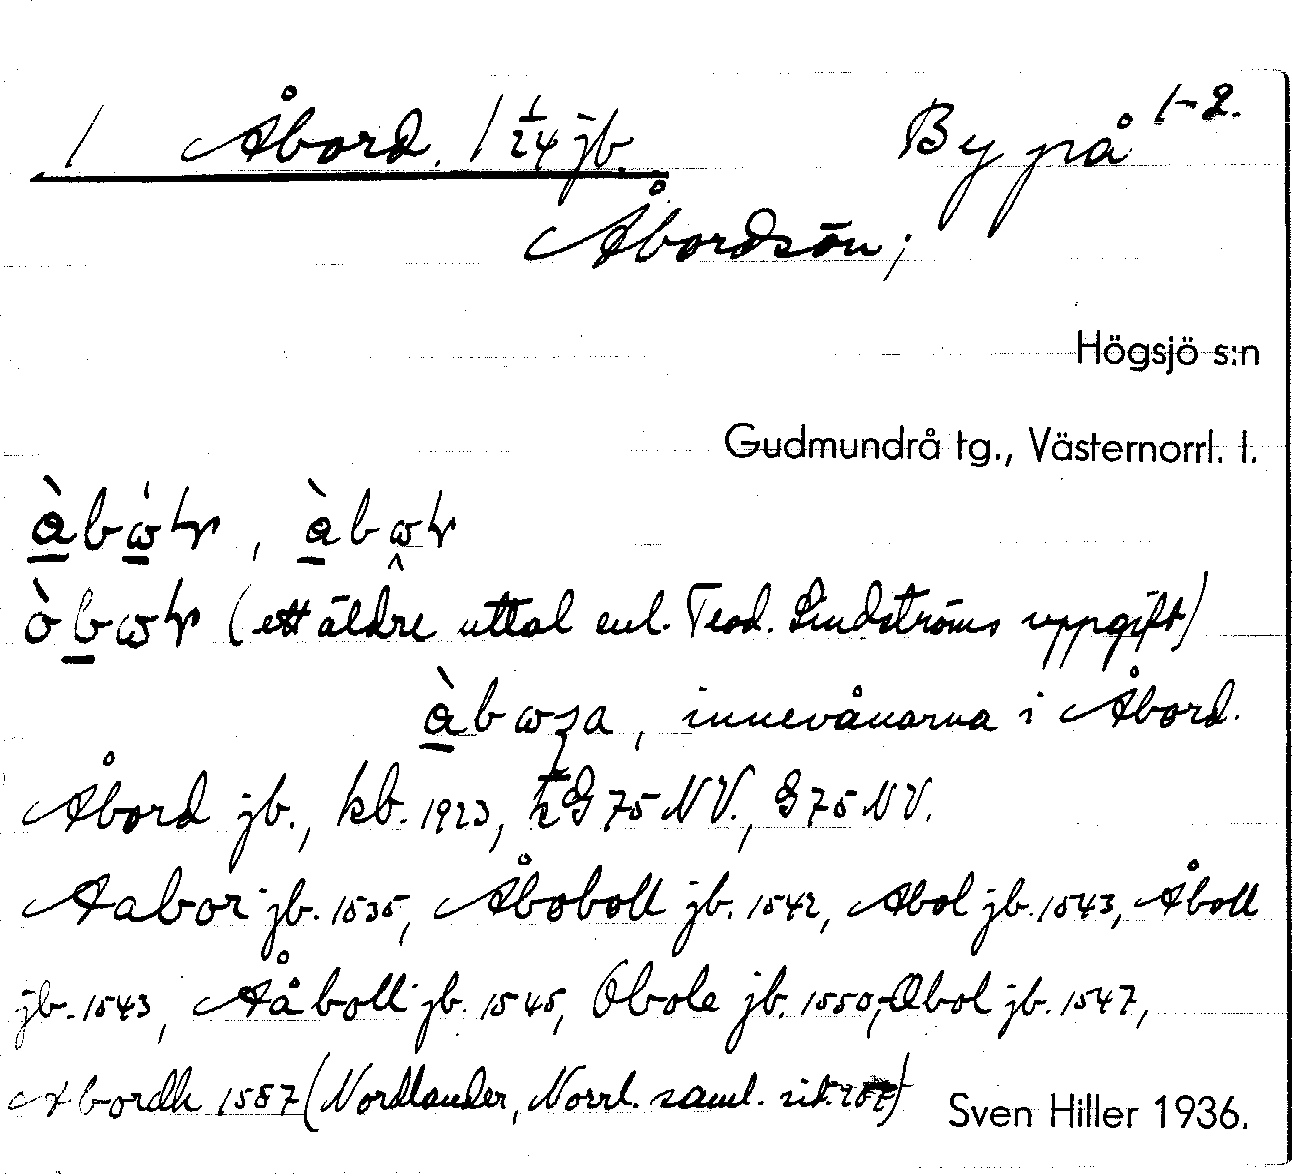 1 Åbord. 1 1/24 jb. By på 1-2.
Åbordsön;
Högsjö s:n
Gudmundrå tg., Västernorrl. l.
(ett äldre uttal enl. Teod. Lindströms uppgift)
innevånarna i Åbord.
Åbord jb., kb. 1923, G 75 NV., G 75 NV.
Aabor jb. 1535, Åboboll jb. 1542, Abol jb. 1543, Åboll
jb. 1543, Aåboll jb. 1545, Obole jb. 1550, Abol jb. 1547,
Abordh 1587 (Nordlander, Norrl. saml.
Sven Hiller 1936.